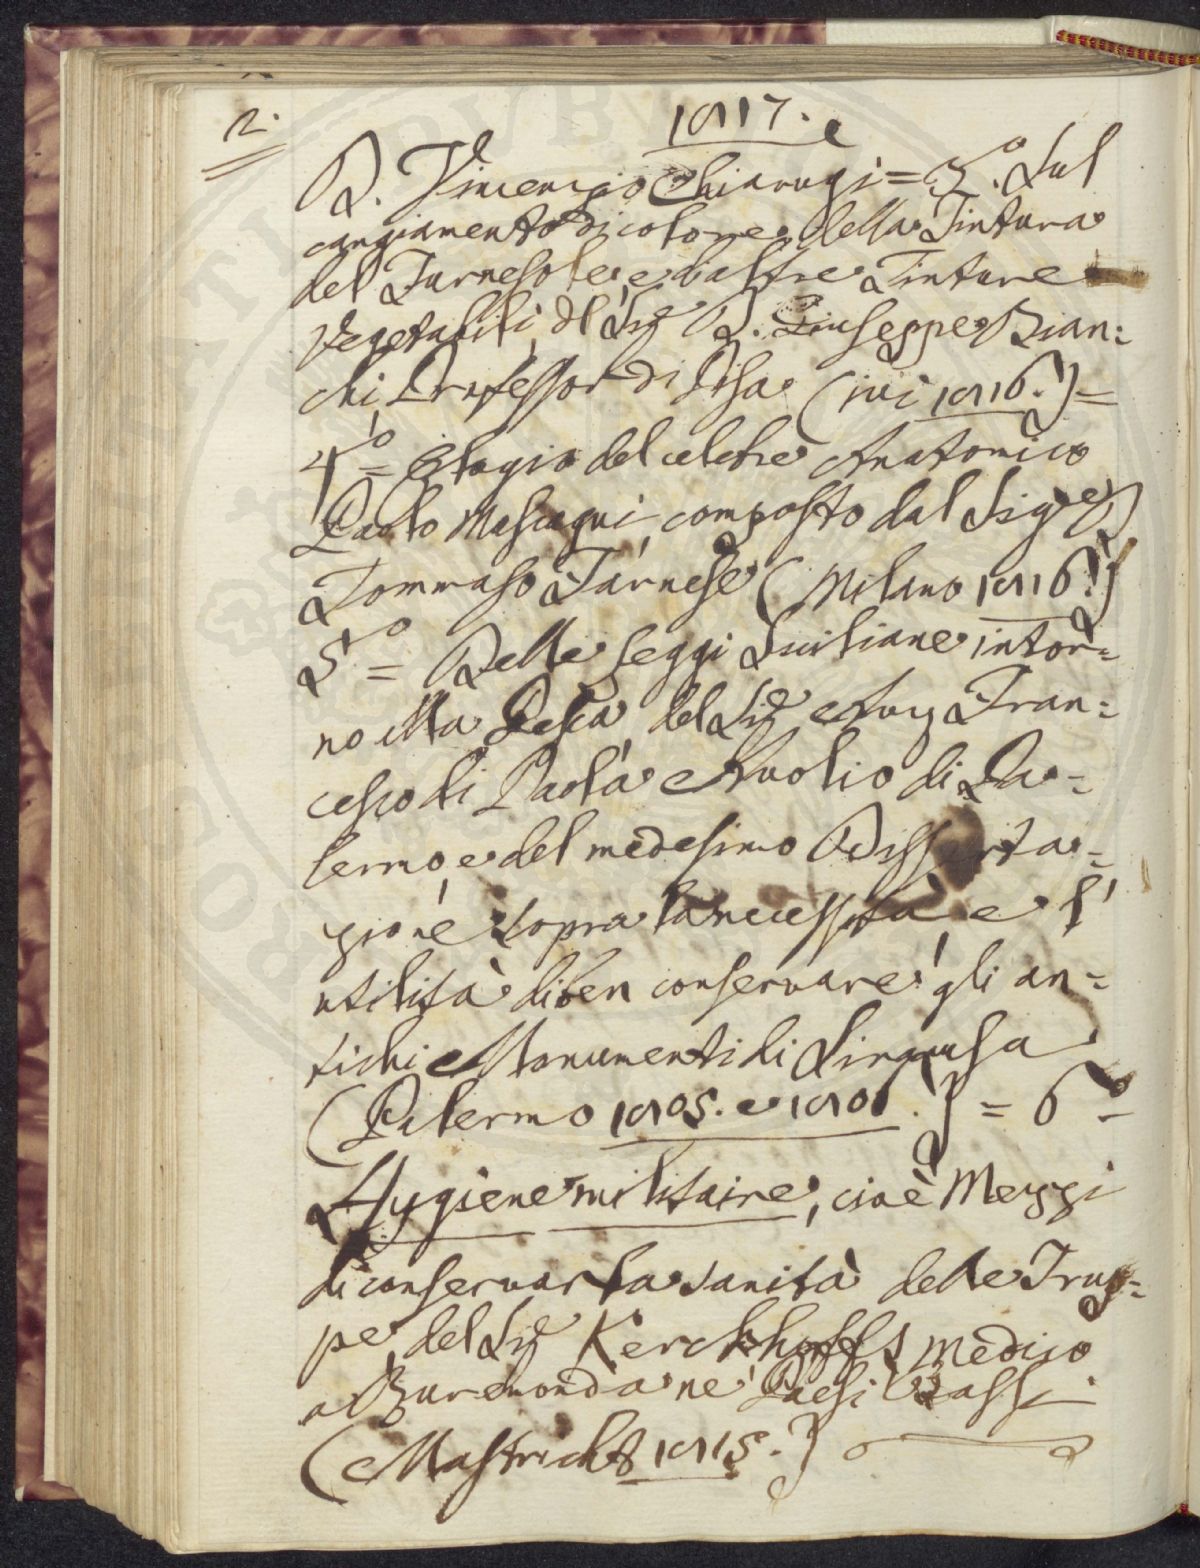 2.
1817.
D. Vincenzio Chiarugi = 3.° Sul
cangiamento di colore della Tintura
del Turnesole, e d'altre Tinture
Vegetabili, del Sig. D. Giuseppe Bian=
chi, Professor di Pisa (ivi 1816.) =
4.° = Elogio del celebre Anatomico
Paolo Mascagni, composto dal Sig. D.
Tommaso Farnese (Milano 1816.)
5.° = Delle Leggi Siciliane intor=
no alla Pesca, del Sig. Avv. Fran=
cesco di Paola Avolio di Pa=
lermo, e del medesimo Disserta=
zione sopra la necessità, e l'
utilità di ben conservare gli an=
tichi Monumenti di Siragusa
(Palermo 1805. e 1806.) = 6.° =
Hygiene militaire, cioè Mezzi
di conservar la sanità delle Trup=
pe, del Sig. Kerckhoffs Medico
a Ruremonda ne' Paesi Bassi
(Mastricht 1815.)